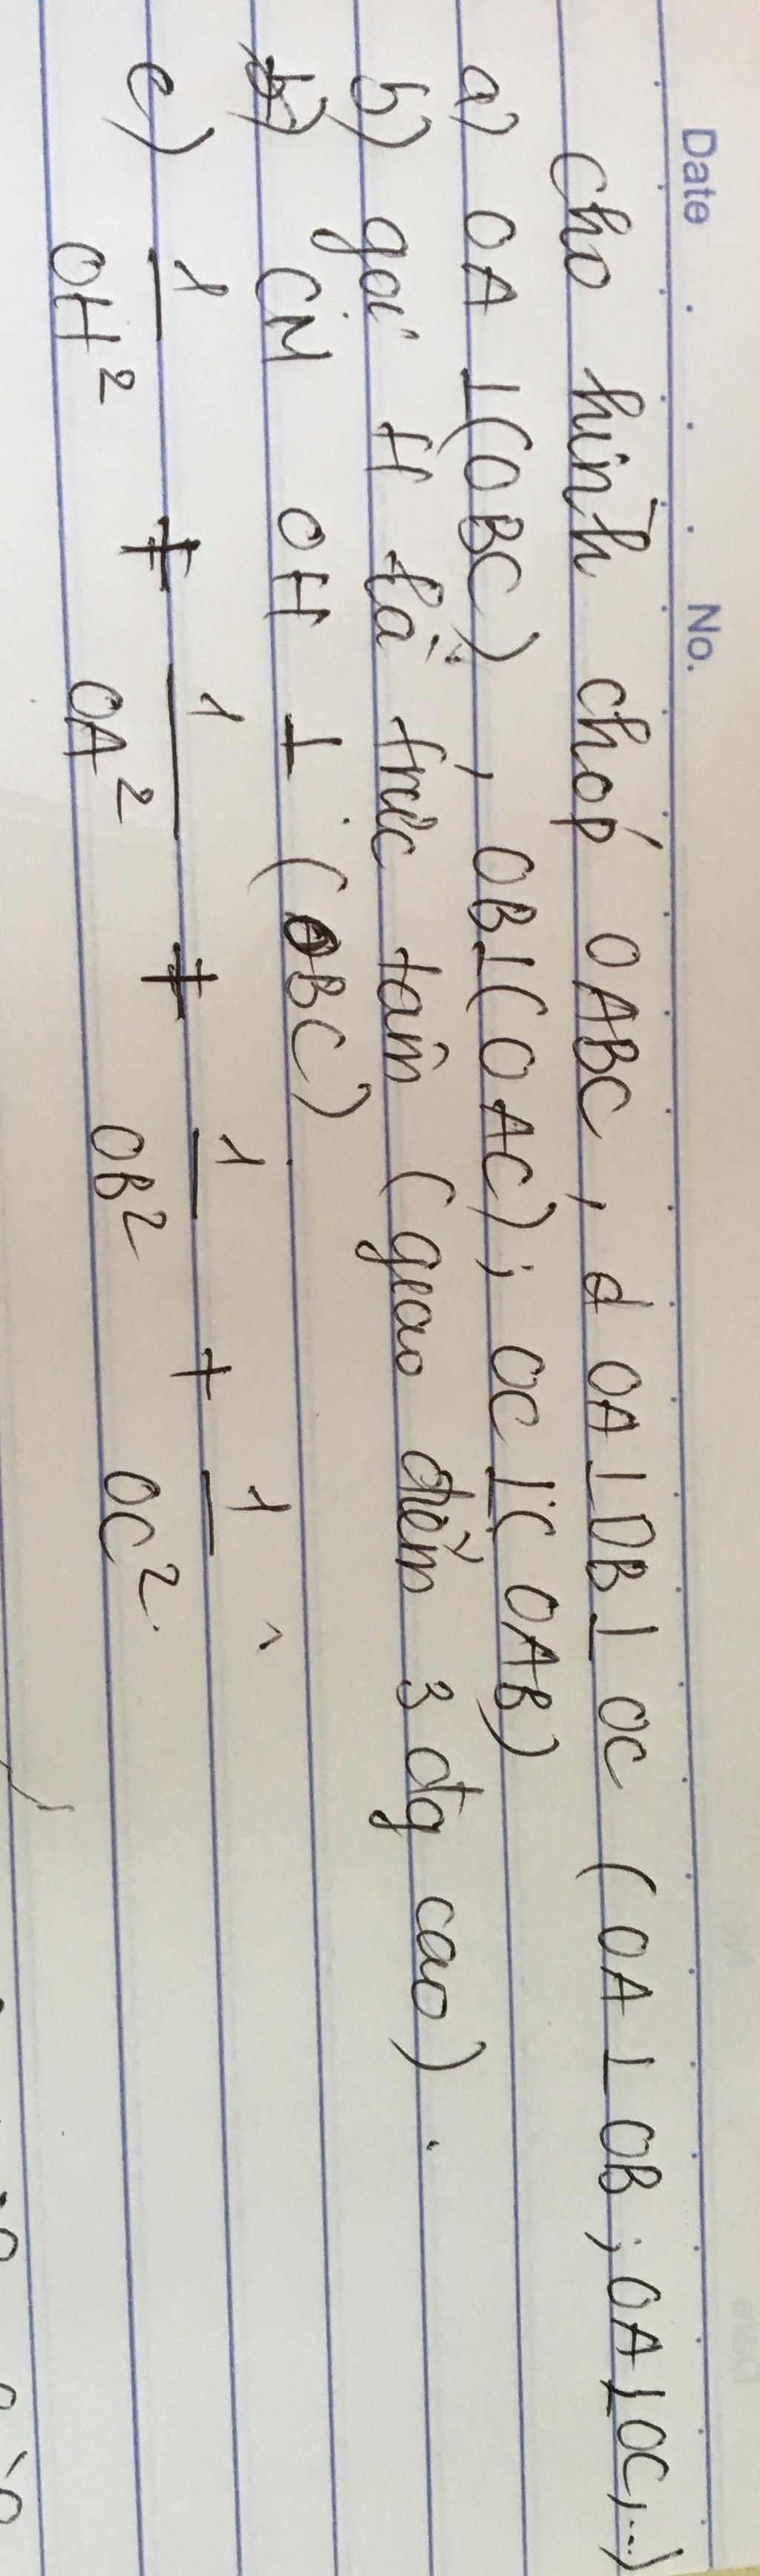 Date No.
Cho hình chóp OABC, d OA ⊥ OB ⊥ OC (OA ⊥ OB; OA ⊥ OC,...)
a) OA ⊥ (OBC), OB ⊥ (OAC); OC ⊥ (OAB)
b) gọi H là trực tâm (giao điểm 3 đg cao).
CM OH ⊥ (ABC)
c) 1/OH² = 1/OA² + 1/OB² + 1/OC²